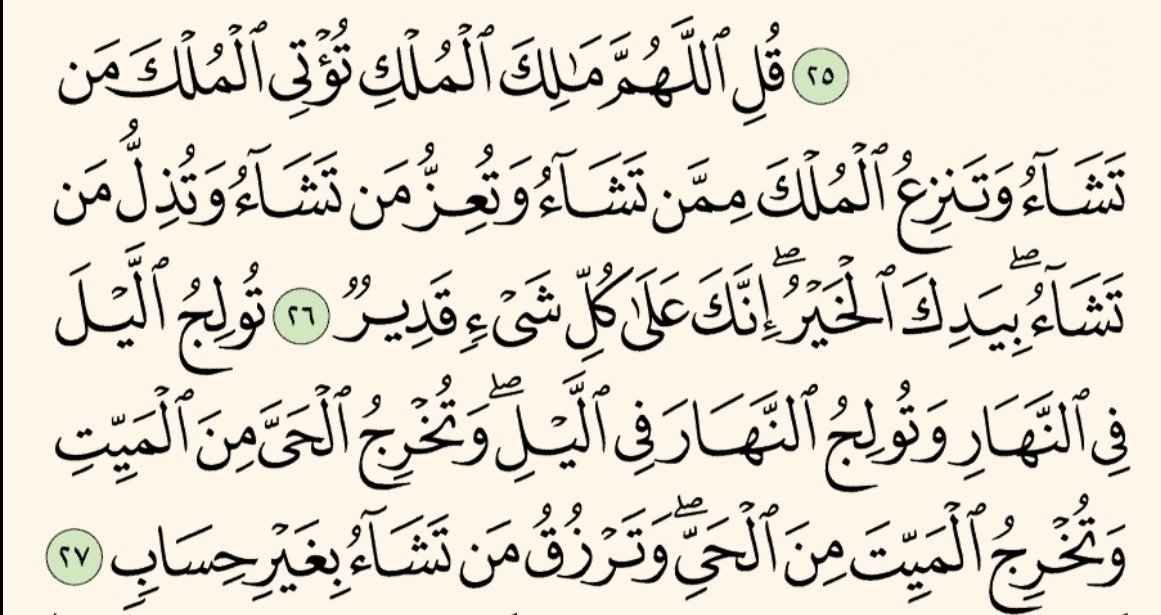 ٢٥ قُلِ ٱللَّهُمَّ مَـٰلِكَ ٱلۡمُلۡكِ تُؤۡتِي ٱلۡمُلۡكَ مَن
تَشَآءُ وَتَنزِعُ ٱلۡمُلۡكَ مِمَّن تَشَآءُ وَتُعِزُّ مَن تَشَآءُ وَتُذِلُّ مَن
تَشَآءُۖ بِيَدِكَ ٱلۡخَيۡرُۖ إِنَّكَ عَلَىٰ كُلِّ شَيۡءٖ قَدِيرٞ ٢٦ تُولِجُ ٱلَّيۡلَ
فِي ٱلنَّهَارِ وَتُولِجُ ٱلنَّهَارَ فِي ٱلَّيۡلِۖ وَتُخۡرِجُ ٱلۡحَيَّ مِنَ ٱلۡمَيِّتِ
وَتُخۡرِجُ ٱلۡمَيِّتَ مِنَ ٱلۡحَيِّۖ وَتَرۡزُقُ مَن تَشَآءُ بِغَيۡرِ حِسَابٖ ٢٧